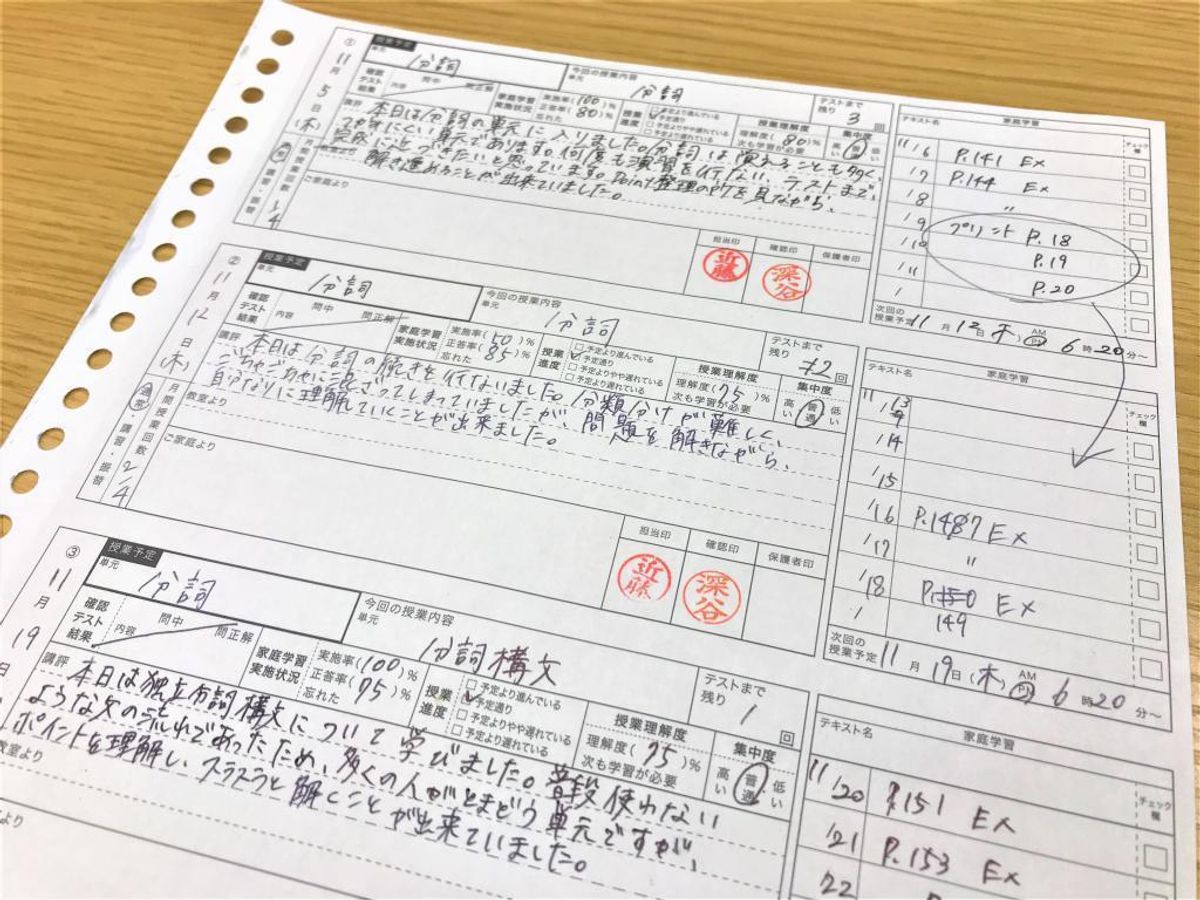 ① 授業予定
単元 分詞
今回の授業内容
単元 分詞
テストまで残り 3 回
11月5日(木)
確認テスト結果 内容 問中 問正解
家庭学習実施状況 実施率(100)% 正答率(80)% 忘れた
授業進度 □予定より進んでいる ☑予定通り □予定よりやや遅れている □予定より遅れている
授業理解度 理解度(80)% 次も学習が必要
集中度 高い 普通 低い
講評 本日は分詞の単元に入りました。分詞は覚えることも多く、
つかみにくい単元であります。何度も演習を行ない、テストまで、
完成に近づきたいと思っています。Point整理のP17を見ながら、
解き進めることが出来ていました。
教室より
ご家庭より
月間授業回数 1/4
通常・講習・振替
担当印 確認印 保護者印
近藤 深谷
テキスト名 家庭学習 チェック欄
11/6 P.141 Ex
/7 P.144 Ex
/8 〃
/9 プリント P.18
/10 P.19
/11 P.20
次回の授業予定 11月12日(木) AM PM 6時20分〜
② 授業予定
単元 分詞
今回の授業内容
単元 分詞
テストまで残り 2 回
11月12日(木)
確認テスト結果 内容 問中 問正解
家庭学習実施状況 実施率(50)% 正答率(85)% 忘れた
授業進度 □予定より進んでいる ☑予定通り □予定よりやや遅れている □予定より遅れている
授業理解度 理解度(75)% 次も学習が必要
集中度 高い 普通 低い
講評 本日は分詞の続きを行ないました。分類分けが難しく、
ごちゃごちゃに混ざってしまっていましたが、問題を解きながら、
自分なりに理解していくことが出来ました。
教室より
ご家庭より
月間授業回数 2/4
通常・講習・振替
担当印 確認印 保護者印
近藤 深谷
テキスト名 家庭学習 チェック欄
11/13
/14
/15
/16 P.147 Ex
/17 〃
/18 P.150 Ex
/ 149
次回の授業予定 11月19日(木) AM PM 6時20分〜
③ 授業予定
単元 分詞
今回の授業内容
単元 分詞構文
テストまで残り 1 回
11月19日
確認テスト結果 内容 問中 問正解
家庭学習実施状況 実施率(100)% 正答率(75)% 忘れた
授業進度 □予定より進んでいる ☑予定通り □予定よりやや遅れている □予定より遅れている
授業理解度 理解度(75)% 次も学習が必要
集中度 高い 普通 低い
講評 本日は独立分詞構文について学びました。普段使わない
ような文の流れであったため、多くの人がとまどう単元ですが、
ポイントを理解し、スラスラと解くことが出来ていました。
教室より
より
テキスト名 家庭学習 チェック欄
11/20 P.151 Ex
/21 P.153 Ex
/22